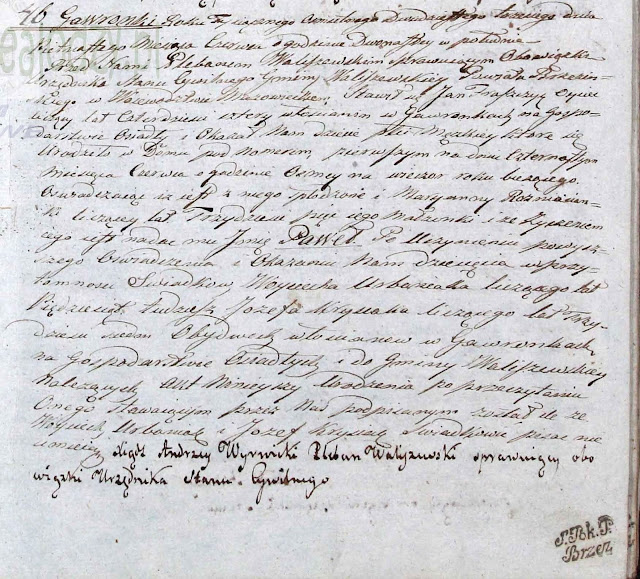 46 Gawronki Roku Tysiącznego Osmsetnego Dwudziestego trzeciego dnia
piętnastego Miesiąca Czerwca o godzinie Dwunastej w południe
Przed Nami Plebanem Waliszewskim sprawuiącym Obowiązki
Urzędnika Stanu Cywilnego Gminy Waliszewskiey Powiatu Brzeziń-
skiego w Woiewodztwie Mazowieckim. Stawił się Jan oyciec
liczący lat Czterdzieści cztery włoscianin w Gawronkach na Gospo-
darstwie Osiadły i Okazał Nam dziecie płci Męskiey ktore się
Urodziło w Domu pod numerem pierwszym na dniu Czternastym
Miesiąca Czerwca o godzinie Osmey na wieczor roku bieżącego
Oswiadczaiąc iż iest z niego spłodzone i Maryanny Rozniakan-
ki liczącey lat Trzydzieści pięc iego Małżonki i że życzeniem
iego iest nadac mu Imię Paweł. Po Uczynieniu powyż-
szego Oswiadczenia i Okazaniu Nam dziecięcia w przy-
tomnosci Swiadkow Woyciecha Urbaniaka liczącego lat
Pięćdziesiąt tudziesz Jozefa Krysiaka liczącego lat Trzy-
dzieści siedm Obydwoch włoscianow w Gawronkach
na Gospodarstwie Osiadłych i do Gminy Waliszewskiey
należących. Akt Ninieyszy Urodzenia po przeczytaniu
Onego Stawaiącym przez Nas podpisanym został że ze
Woyciech Urbaniak i Jozef Krysiak Swiadkowie pisac nie
umieią Andrzey Wyrwicki Pleban Waliszewski sprawuiący obo
wiązki Urzędnika Stanu Cywilnego
P. Pok. P.
Brzez